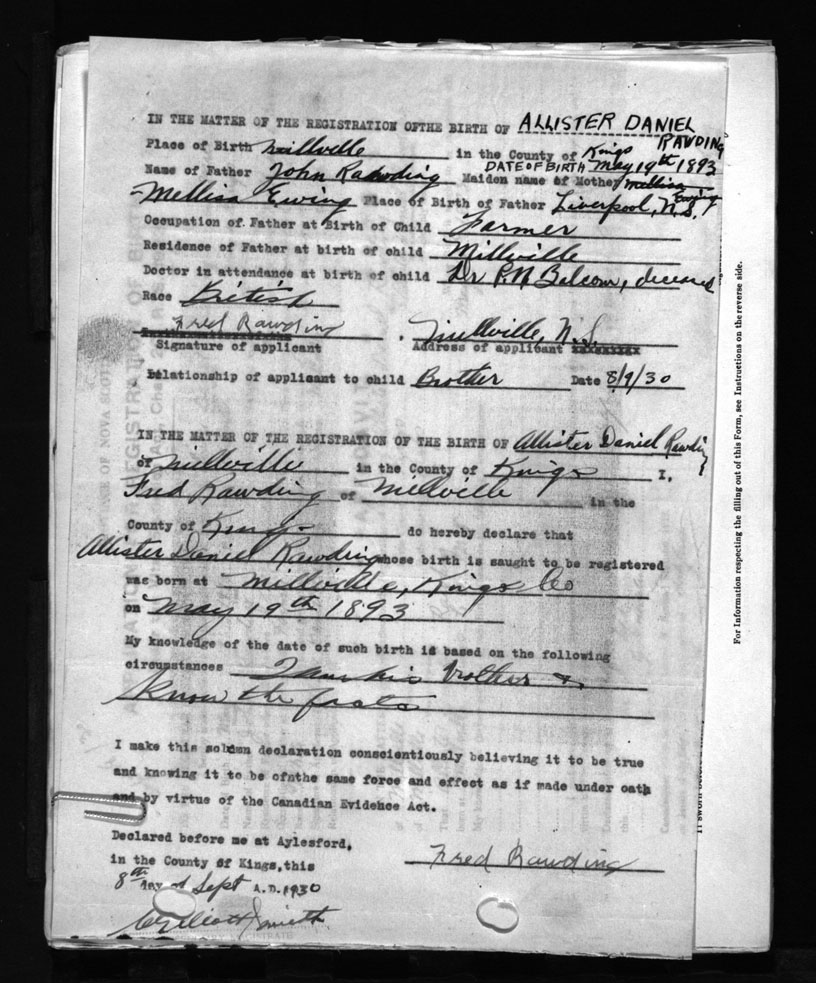 IN THE MATTER OF THE REGISTRATION OFTHE BIRTH OF ALLISTER DANIEL
RAWDING
Place of Birth Millville in the County of Kings
DATE OF BIRTH May 19th 1893
Name of Father John Rawding Maiden name of Mother Mellisa Ewing
Mellisa Ewing Place of Birth of Father Liverpool, N.S.
Occupation of Father at Birth of Child Farmer
Residence of Father at birth of child Millville
Doctor in attendance at birth of child Dr P.N Balcom, deceased
Race British
Fred Rawding Millville, N.S.
Signature of applicant Address of applicant
Relationship of applicant to child Brother Date 8/9/30
IN THE MATTER OF THE REGISTRATION OF THE BIRTH OF Allister Daniel Rawding
of Millville in the County of Kings I,
Fred Rawding of Millville in the
County of Kings do hereby declare that
Allister Daniel Rawding whose birth is saught to be registered
was born at Millville, Kings Co
on May 19th 1893
My knowledge of the date of such birth is based on the following
circumstances I am his brother &
know the facts
I make this solemn declaration conscientiously believing it to be true
and knowing it to be ofnthe same force and effect as if made under oath
and by virtue of the Canadian Evidence Act.
Declared before me at Aylesford,
in the County of Kings, this Fred Rawding
8th day of Sept A.D. 1930
For Information respecting the filling out of this Form, see Instructions on the reverse side.